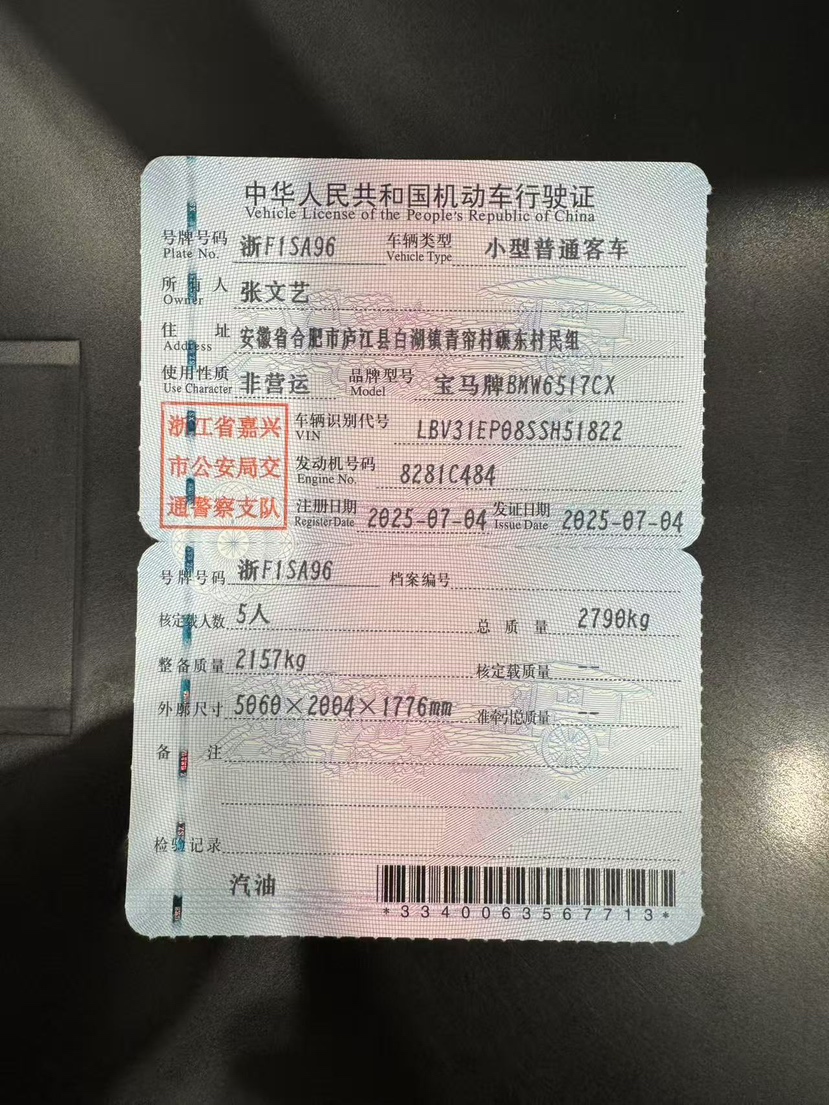 中华人民共和国机动车行驶证
Vehicle License of the People's Republic of China
号牌号码 浙F1SA96 车辆类型 小型普通客车
Plate No. Vehicle Type
所有人 张文艺
Owner
住址 安徽省合肥市庐江县白湖镇青帘村碾东村民组
Address
使用性质 非营运 品牌型号 宝马牌BMW6517CX
Use Character Model
浙江省嘉兴
市公安局交
通警察支队
车辆识别代号 LBV31EP08SSH51822
VIN
发动机号码 8281C484
Engine No.
注册日期 2025-07-04 发证日期 2025-07-04
Register Date Issue Date
号牌号码 浙F1SA96 档案编号
核定载人数 5人 总质量 2790kg
整备质量 2157kg 核定载质量 --
外廓尺寸 5060×2004×1776mm 准牵引总质量 --
备注
检验记录
汽油
*3340063567713*